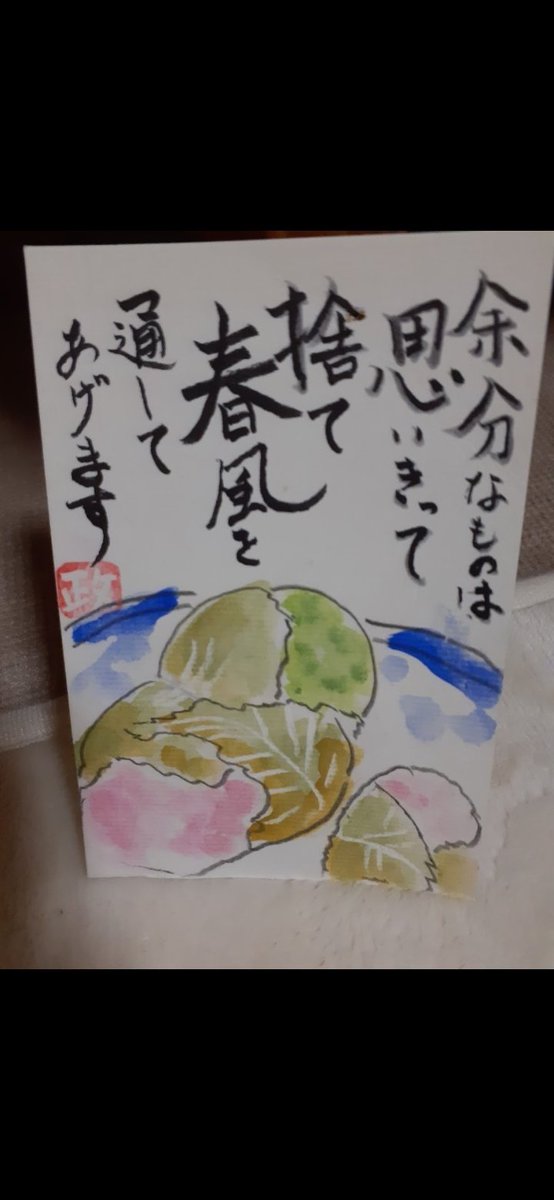 余分なものは
思いきって
捨て
春風を
通して
あげます